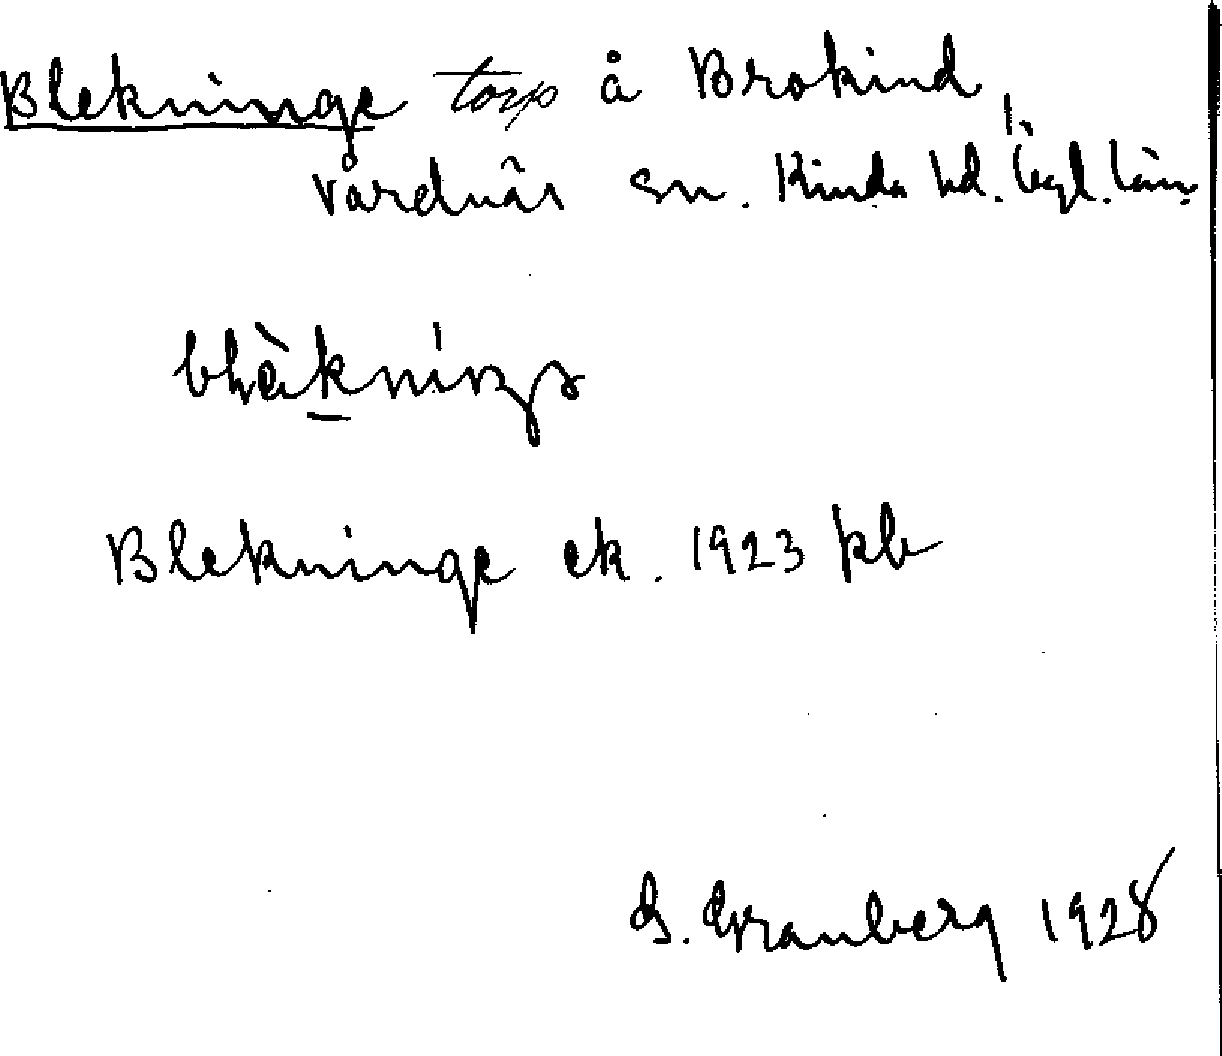 Blekninge torp å Brokind,
Vårdnäs sn. Kinda hd. Ögl. län.
Blekninge ek. 1923 kb
G. Granberg 1928